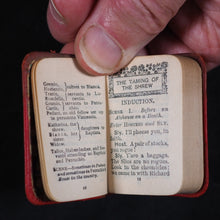 Gremio,
Hortensio,
Tranio,
Biondello,
Grumio,
Curtis,
suitors to Bianca.
servants to Lucentio.
servants to Petruchio.
Katharina, the shrew,
Bianca,
daughters to Baptista.
Widow.
Tailor, Haberdasher, and Servants
attending on Baptista
and Petruchio.
SCENE—Sometimes in Padua;
and sometimes in Petruchio's
House in the country.
THE TAMING OF
THE SHREW
INDUCTION.
SCENE I. Before an
Alehouse on a Heath.
Enter HOSTESS and SLY.
Sly. I'll pheeze you, in
faith.
Host. A pair of stocks,
you rogue!
Sly. Y'are a baggage.
The Slies are no rogues.
Look in the chronicles; we
came in with Richard